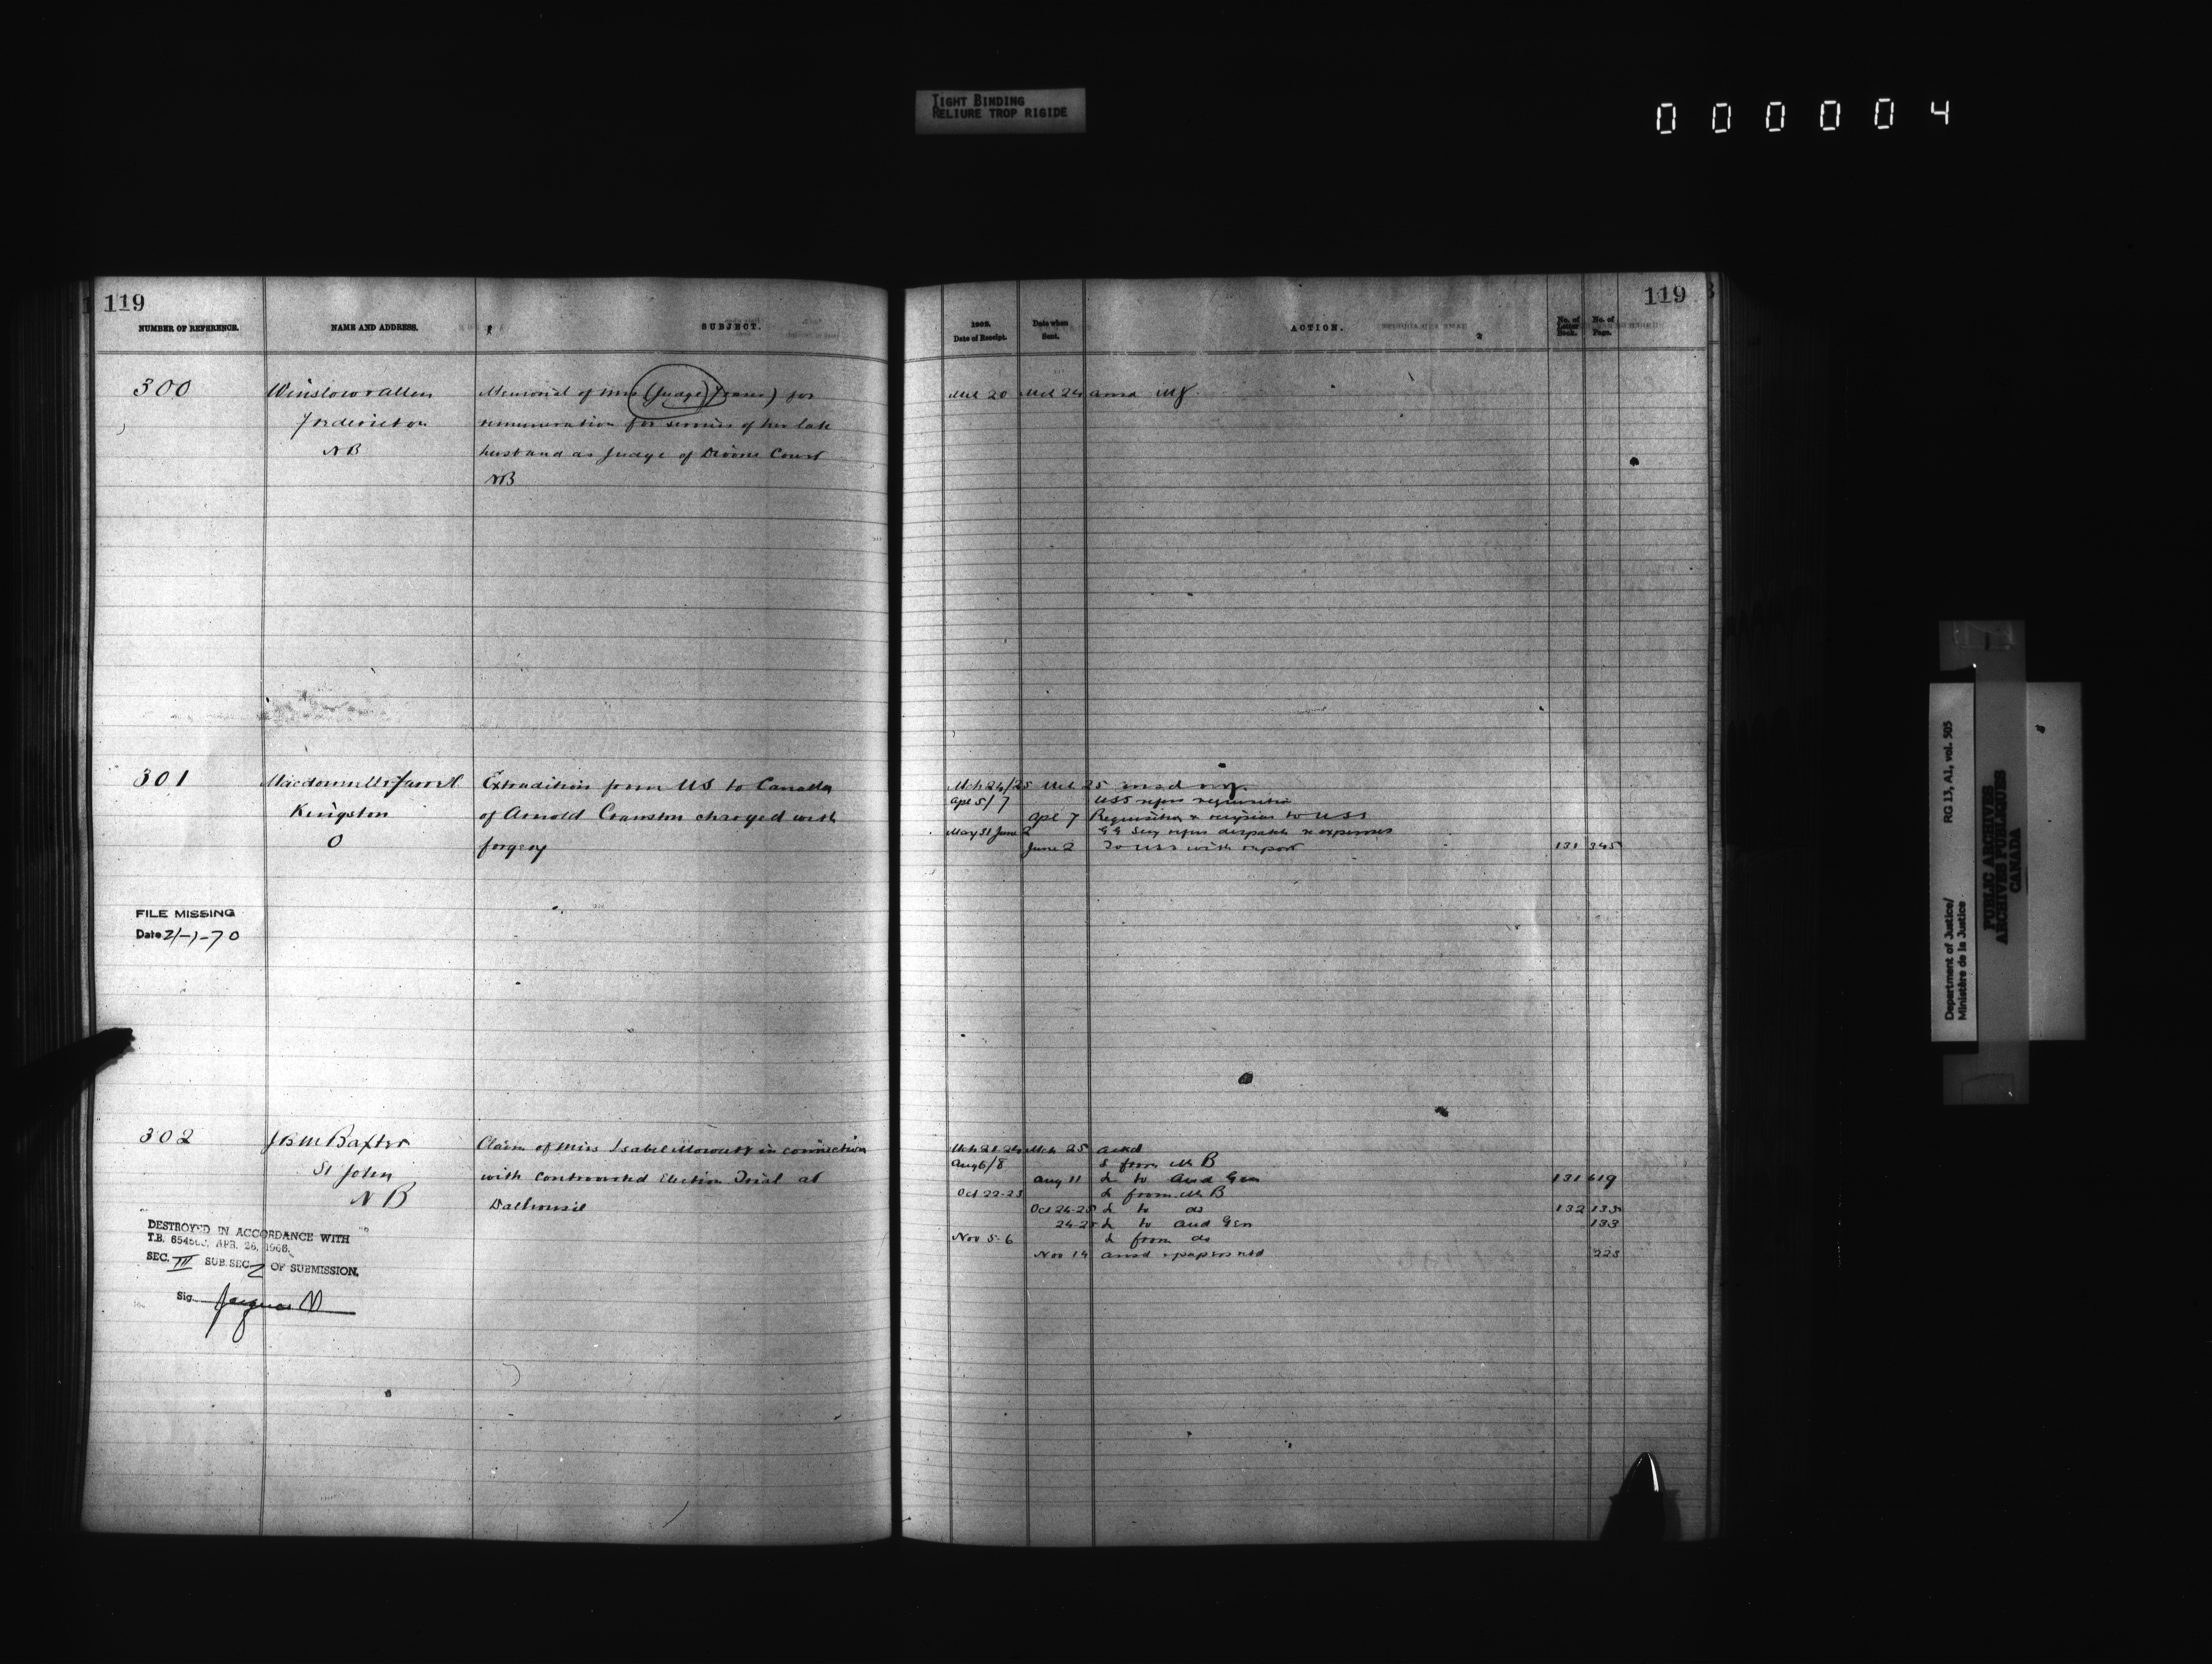 TIGHT BINDING
RELIURE TROP RIGIDE
000004
119
NUMBER OF REFERENCE.
NAME AND ADDRESS.
SUBJECT.
300
Winslow & Allen
Fredericton
NB
Memorial of Mrs (Judge) for
remuneration for services of her late
husband as Judge of Divorce Court
NB
301
Kingston
O
Extradition from US to Canada
of Arnold Cranston charged with
forgery
FILE MISSING
Date 21-1-70
302
JBM Baxter
St John
NB
Claim of Miss Isabel Mowatt in connection
with Controverted Election Trial at
Dalhousie
DESTROYED IN ACCORDANCE WITH
T.B. APR. 26, 1966.
SEC. III SUB. SEC. 2 OF SUBMISSION.
Sig.
119
Date of Receipt.
Date when Sent.
ACTION.
No. of Letter Book.
No. of Page.
Mch 20 Mch 24
Mch 24/25 Mch 25
Apl 5/7 USS refers requisition
Apl 7 Requisition to USS
May 31 June 2 GG Secy refers despatch re expenses
June 2 To USS with report 131 345
Mch 25 ackd
Aug 6/8 L from Mr B
Aug 11 L to Aud Gen 131 619
Oct 22-23 L from Mr B
Oct 24-25 L to do 132 133
24-25 L to Aud Gen 133
Nov 5-6 L from do
Nov 14 223
Department of Justice/
Ministère de la Justice
RG 13, A1, vol. 505
PUBLIC ARCHIVES
ARCHIVES PUBLIQUES
CANADA